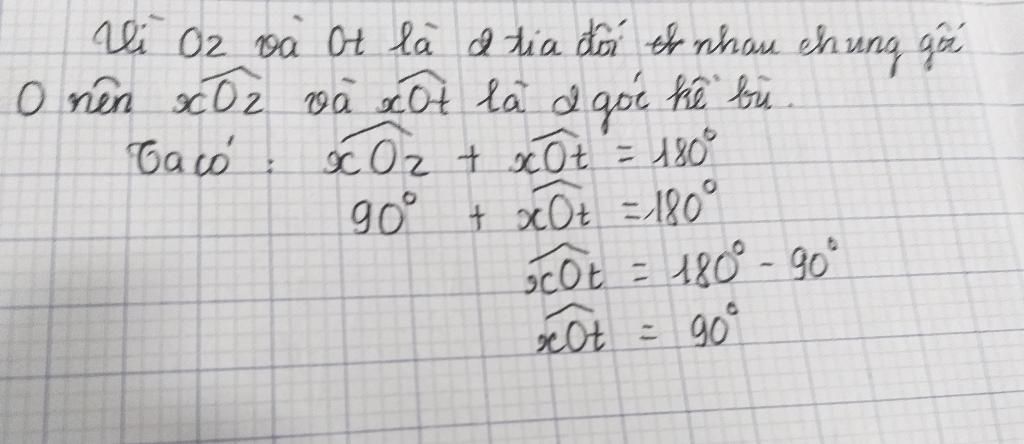 Vì Oz và Ot là 2 tia đối nhau chung gốc
O nên xOz và xOt là 2 góc kề bù.
Ta có : xOz + xOt = 180°
90° + xOt = 180°
xOt = 180° - 90°
xOt = 90°